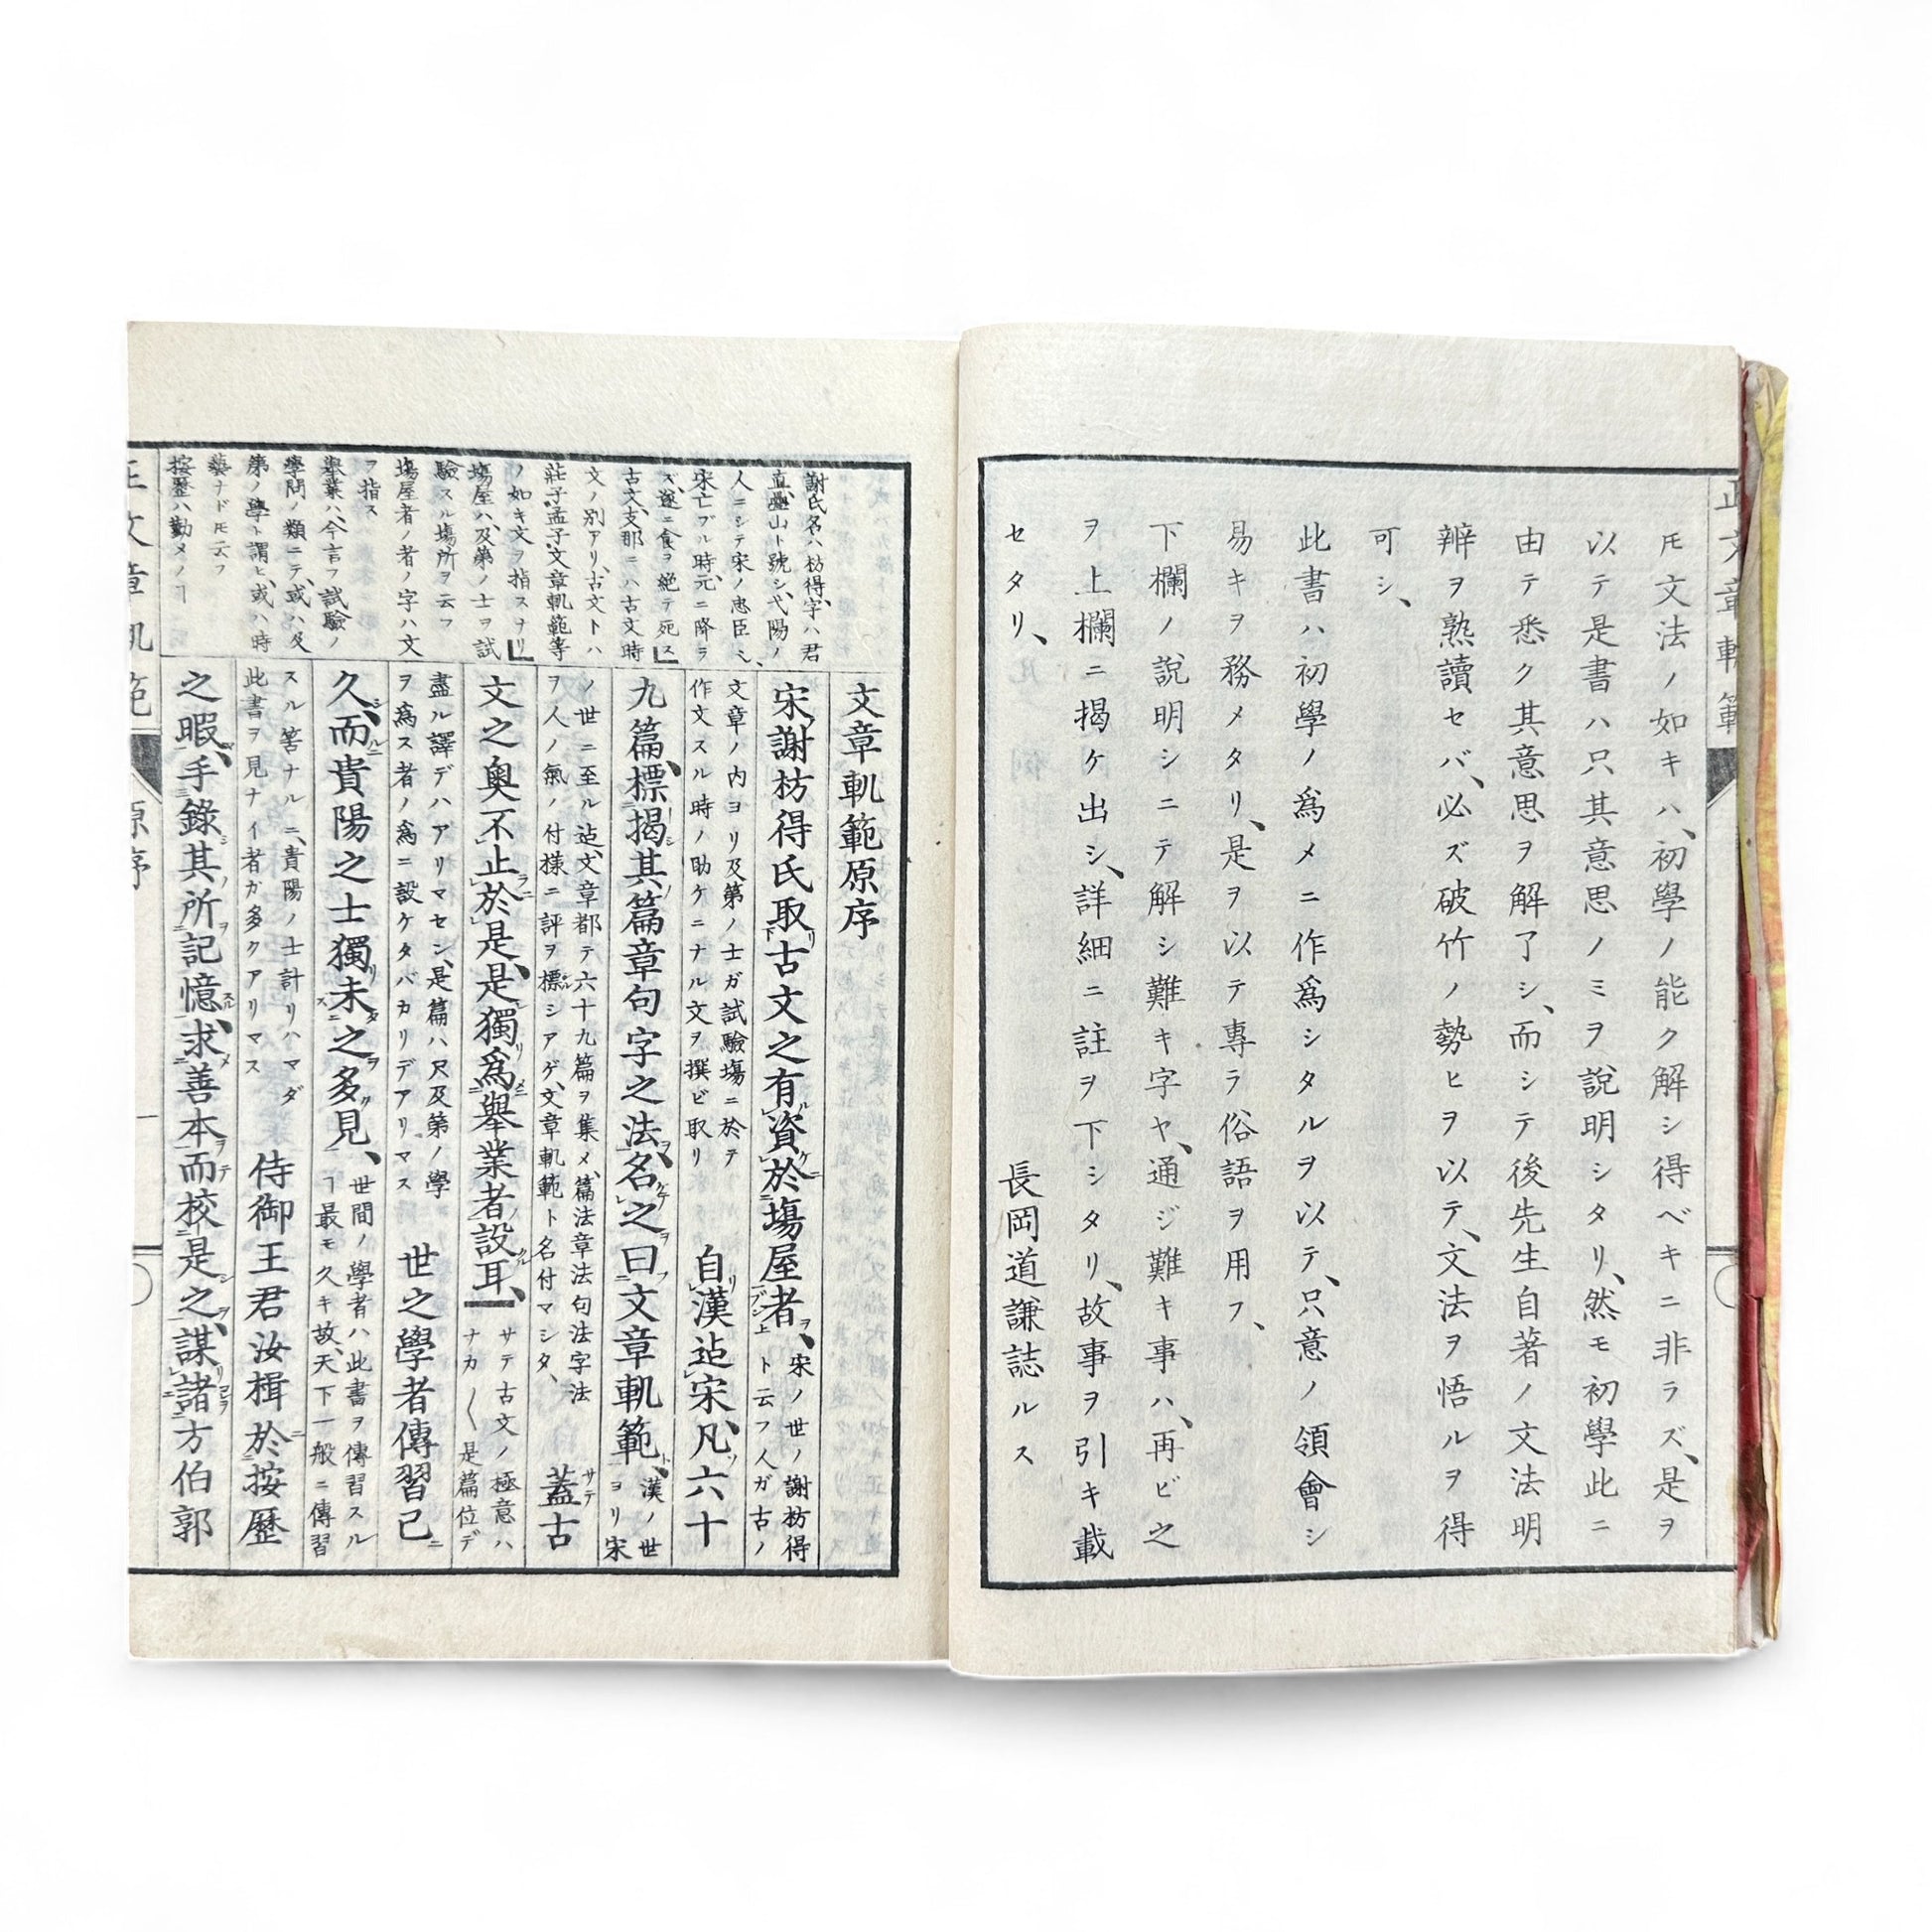 正文章軌範
𪜈文法ノ如キハ、初學ノ能ク解シ得ベキニ非ラズ、是ヲ
以テ是書ハ只其意思ノミヲ說明シタリ、然モ初學此ニ
由テ悉ク其意思ヲ解了シ、而シテ後先生自著ノ文法明
辨ヲ熟讀セバ、必ズ破竹ノ勢ヒヲ以テ、文法ヲ悟ルヲ得
可シ、
此書ハ初學ノ爲メニ作爲シタルヲ以テ、只意ノ領會シ
易キヲ務メタリ、是ヲ以テ專ラ俗語ヲ用フ、
下欄ノ說明シニテ解シ難キ字ヤ、通ジ難キ事ハ、再ビ之
ヲ上欄ニ揭ケ出シ、詳細ニ註ヲ下シタリ、故事ヲ引キ載
セタリ、
長岡道謙誌ルス
謝氏名ハ枋得、字ハ君
直、疊山ト號シ、弋陽ノ
人ニシテ宋ノ忠臣ヘ、
宋亡ブル時、元ニ降ラ
ズ、遂ニ食ヲ絕テ死ス」
古文、支那ニハ古文時
文ノ別アリ、古文トハ
莊子、孟子、文章軌範等
ノ如キ文ヲ指スナリ」
塲屋ハ、及第ノ士ヲ試
驗スル塲所ヲ云フ
塲屋者ノ者ノ字ハ文
ヲ指ス
擧業ハ、今言フ試驗ノ
學問ノ類ニテ、或ハ及
第ノ學ト謂ヒ、或ハ時
藝ナド𪜈云フ
按歷ハ勤メノヿ
文章軌範原序
宋謝枋得氏取古文之有資於塲屋者、
宋ノ世ノ謝枋得
ト云フ人ガ古ノ
文章ノ內ヨリ及第ノ士ガ試驗塲ニ於テ
作文スル時ノ助ケニナル文ヲ撰ビ取リ
自漢迨宋、凡六十
九篇、標揭其篇章句字之法、名之曰文章軌範、
漢ノ世
ヨリ宋
ノ世ニ至ル迨、文章都テ六十九篇ヲ集メ、篇法章法句法字法
ヲ人ノ氣ノ付樣ニ評ヲ標シアゲ、文章軌範ト名付マシタ、
蓋古
文之奧不止於是、是獨爲擧業者設耳、
サテ古文ノ極意ハ
ナカ〱是篇位デ
盡ル譯デハアリマセン、是篇ハ只及第ノ學
ヲ爲ス者ノ爲ニ設ケタバカリデアリマス
世之學者傳習已
久、而貴陽之士獨未之多見、
世間ノ學者ハ此書ヲ傳習スル
ヿ最モ久キ故、天下一般ニ傳習
スル筈ナルニ、貴陽ノ士計リハマダ
此書ヲ見ナイ者ガ多クアリマス
侍御王君汝楫於按歷
之暇、手錄其所記憶、求善本而校是之、謀諸方伯郭